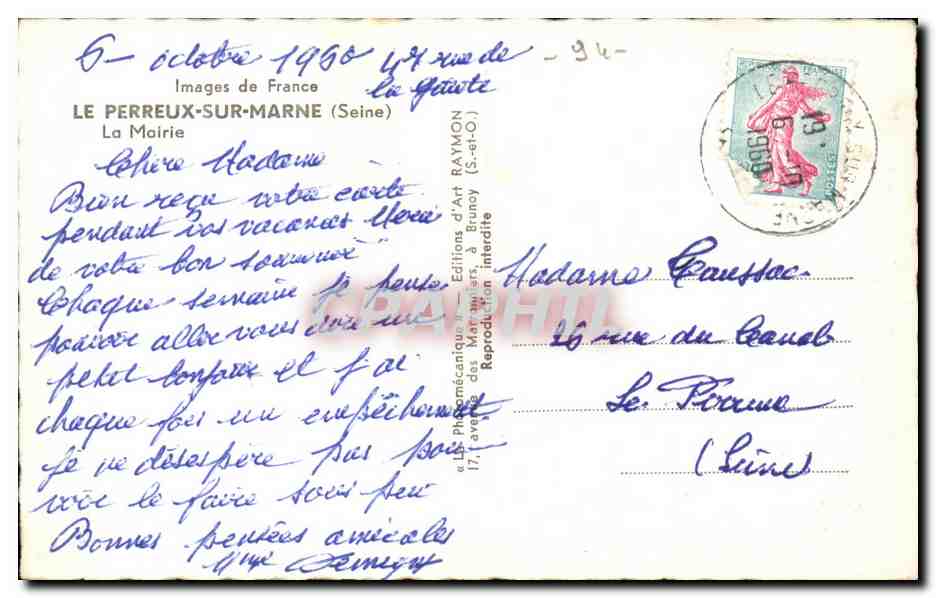 6- octobre 1960 47 rue de
la
- 94 -
Images de France
LE PERREUX-SUR-MARNE (Seine)
La Mairie
Chère Madame
Bien reçu votre carte
pendant vos vacances Merci
de votre bon souvenir
Chaque semaine je pense
pouvoir aller vous dire un
petit bonjour et j'ai
chaque fois un empêchement
je ne désespère pas pou-
voir le faire sous peu
Bonnes pensées amicales
Mme
« La Photomécanique » Editions d'Art RAYMON
17, avenue des Marronniers, à Brunoy (S.-et-O.)
Reproduction interdite
CPAPHIL
POSTES
19
6 - 10
1960
Madame Caussac
26 rue du Canal
Le
(Seine)